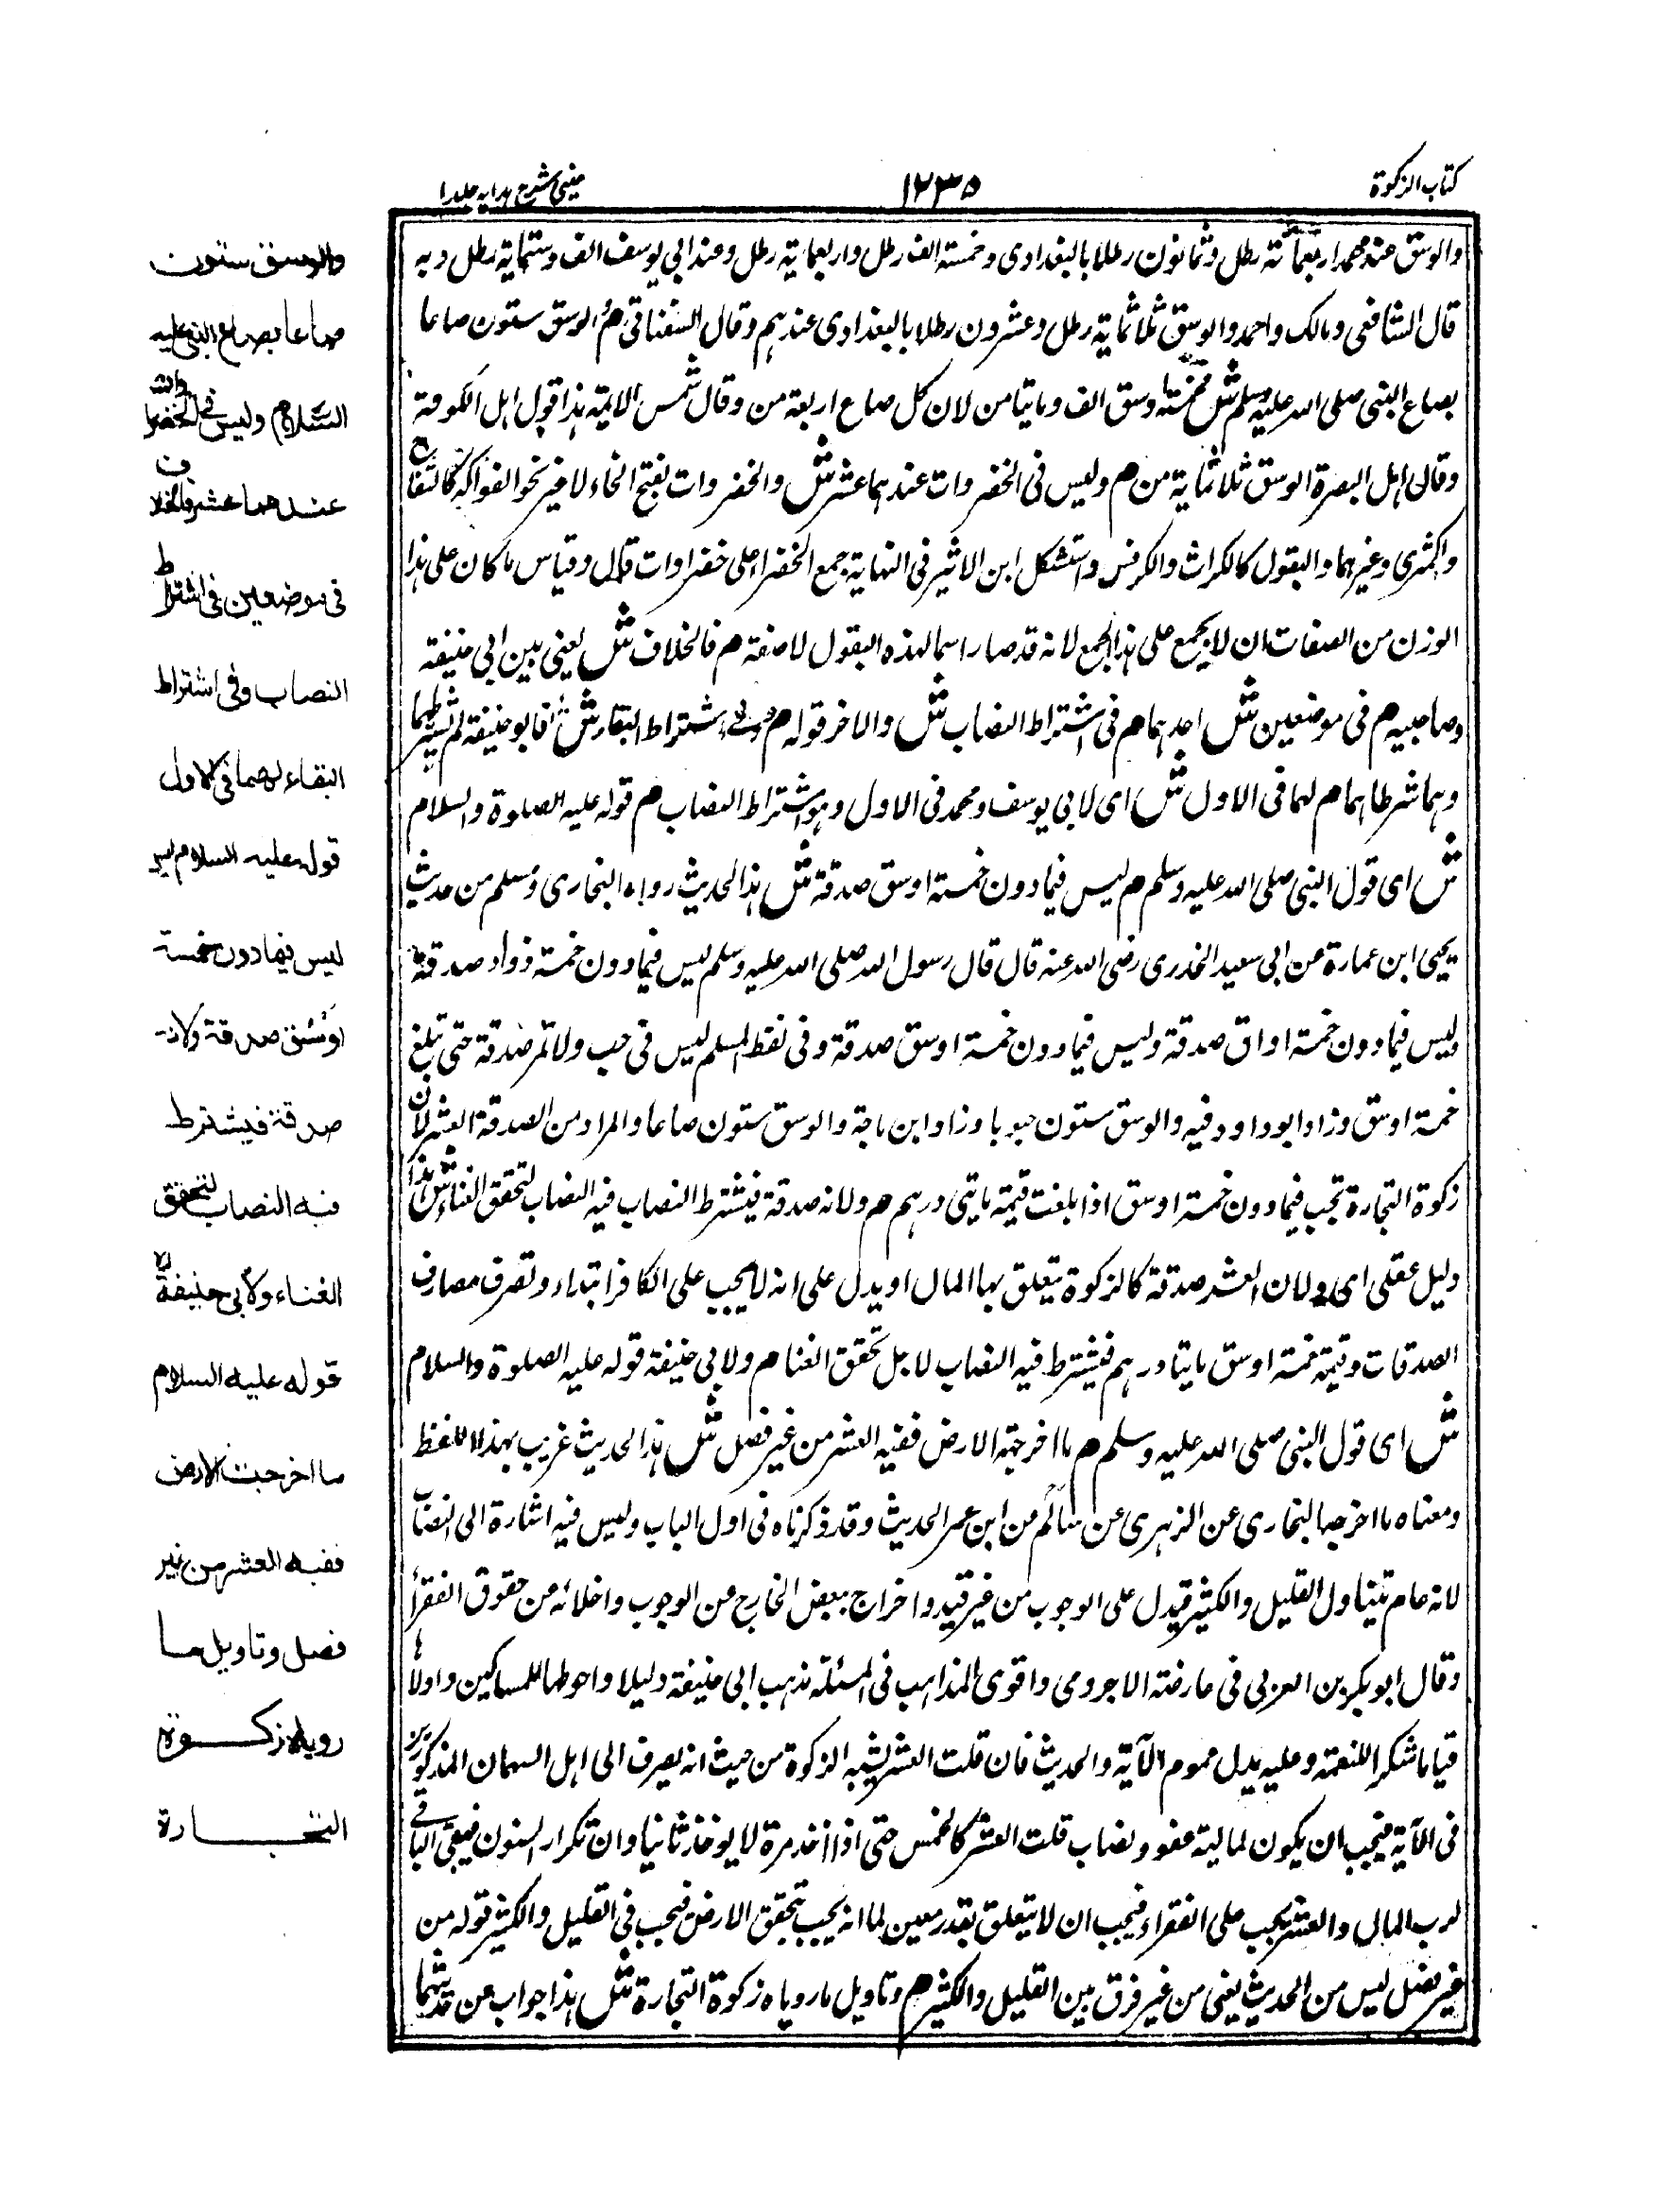 كتاب الزكوة
١٢٣٥
عيني شرح هدايه جلد ١
والوسق عند محمد اربعمائة رطل وثمانون رطلا بالبغدادى وخمسة الف رطل واربعماية رطل وعند ابي يوسف الف وستماية رطل وبه
قال الشافعى ومالك واحمد والوسق ثلاثماية رطل وعشرون رطلا بالبغدادى عندهم وقال السغناقى م الوسق ستون صاعا
بصاع النبى صلى الله عليه وسلم ش فخمسة وسق الف وماتيا من لان كل صاع اربعة من وقال شمس الايمة هذا قول اهل الكوفة
وقال اهل البصرة الوسق ثلاثماية من م وليس فى الخضروات عندهما عشر ش والخضروات بفتح الخاء لا غير نحو الفواكه كالتفاح
والكمثرى وغيرهما والبقول كالكراث والكرفس واستشكل ابن الاثير فى النهاية جمع الخضراء على خضراوات قال وقياس ما كان على هذا
الوزن من الصفات ان لا يجمع على هذا الجمع لانه قد صار اسما لهذه البقول لا صفة م فالخلاف ش يعنى بين ابى حنيفة
وصاحبيه م فى موضعين ش احدهما م فى اشتراط النصاب ش والاخر قوله م وفى اشتراط البقاء ش فابو حنيفة لم يشترطهما
وهما شرطاهما م لهما فى الاول ش اى لابى يوسف ومحمد فى الاول وهو اشتراط النصاب م قوله عليه الصلوة والسلام
ش اى قول النبى صلى الله عليه وسلم م ليس فيما دون خمسة اوسق صدقة ش هذا الحديث رواه البخارى ومسلم من حديث
يحيى ابن عمارة عن ابى سعيد الخدرى رضى الله عنه قال قال رسول الله صلى الله عليه وسلم ليس فيما دون خمسة ذواد صدقة
وليس فيما دون خمسة اواق صدقة وليس فيما دون خمسة اوسق صدقة وفى لفظ المسلم ليس فى حب ولا تمر صدقة حتى تبلغ
خمسة اوسق وزاد ابو داود فيه والوسق ستون وزاد ابن ماجة والوسق ستون صاعا والمراد من الصدقة العشر لان
زكوة التجارة تجب فيما دون خمسة اوسق اذا بلغت قيمة مايتى درهم م ولانه صدقة فيشترط النصاب فيه النصاب لتحقق الغناء ش هذا
دليل عقلى اى ولان العشر صدقة كالزكوة يتعلق بها المال او يدل على انه لا يجب على الكافر ابتداء وتصرف مصارف
الصدقات وقيمة خمسة اوسق مايتا درهم فيشترط فيه النصاب لاجل تحقق الغنا م ولابى حنيفة قوله عليه الصلوة والسلام
ش اى قول النبى صلى الله عليه وسلم م ما اخرجته الارض ففيه العشر من غير فصل ش هذا الحديث غريب بهذا اللفظ
ومعناه ما اخرجه البخارى عن الزهرى عن سالم من ابن عمر الحديث وقد ذكرناه فى اول الباب وليس فيه اشارة الى النصاب
لانه عام يتناول القليل والكثير فيدل على الوجوب من غير قيد واخراج بعض الخارج من الوجوب واخلائه من حقوق الفقرأ
وقال ابو بكر بن العربى فى عارضته الاجرومى واقوى المذاهب فى المسئلة مذهب ابى حنيفة دليلا واحوطها للمساكين واولاها
قياما شكرا للنعمة وعليه يدل عموم الآية والحديث فان قلت العشر يشبه الزكوة من حيث انه يصرف الى اهل السهمان المذكورين
فى الآية فيجب ان يكون لمالية عفو ونصاب قلت العشر كالخمس حتى اذا اخذ مرة لا يوخذ ثانيا وان تكرار السنون فيبقى الباقى
لرب المال والعشر يجب على الفقراء فيجب ان لا يتعلق بقدر معين لما انه يجب بتحقق الارض فيجب فى القليل والكثير قوله من
غير فصل ليس من الحديث يعنى من غير فرق بين القليل والكثير م وتاويل ما روياه زكوة التجارة ش هذا جواب عن حديثهما
والوسق ستون
صاعا بصاع النبى عليه
السلام وليس فى الخضراوات
عندهما عشر فالخلاف
فى موضعين فى اشتراط
النصاب وفى اشتراط
البقاء لهما فى الاول
قوله عليه السلام ليس
ليس فيما دون خمسة
اوسق صدقة ولانه
صدقة فيشترط
فيه النصاب لتحقق
الغناء ولابى حنيفة
قوله عليه السلام
ما اخرجت الارض
ففيه العشر من غير
فصل وتاويل ما
روياه زكوة
التجارة